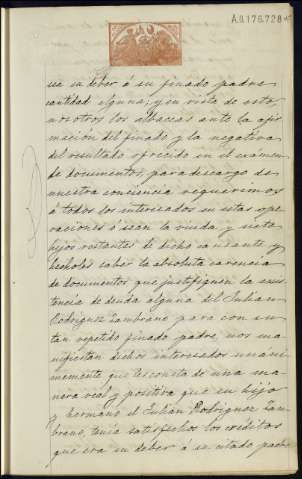 A.0.176.728
cia en deber á su finado padre
cantidad alguna; y en vista de esto,
nosotros los albaceas ante la afir
mación del finado y la negativa
del resultado ofrecido en el exámen
de documentos, para descargo de
nuestra conciencia requerimos
á todos los interesados en estas ope
raciones ó séan la viuda y siete
hijos restantes de dicho causante y
hécholes saber la absoluta carencia
de documentos que justifiquen la exis
tencia de deuda alguna del Julian
Rodriguez Zambrano para con su
tan repetido finado padre, nos ma
nifiestan dichos interesados unáni
memente que les consta de una ma
nera real y positiva que su hijo
y hermano el Julián Rodriguez Zam
brano, tenía satisfechos los créditos
que era en deber á su citado padre